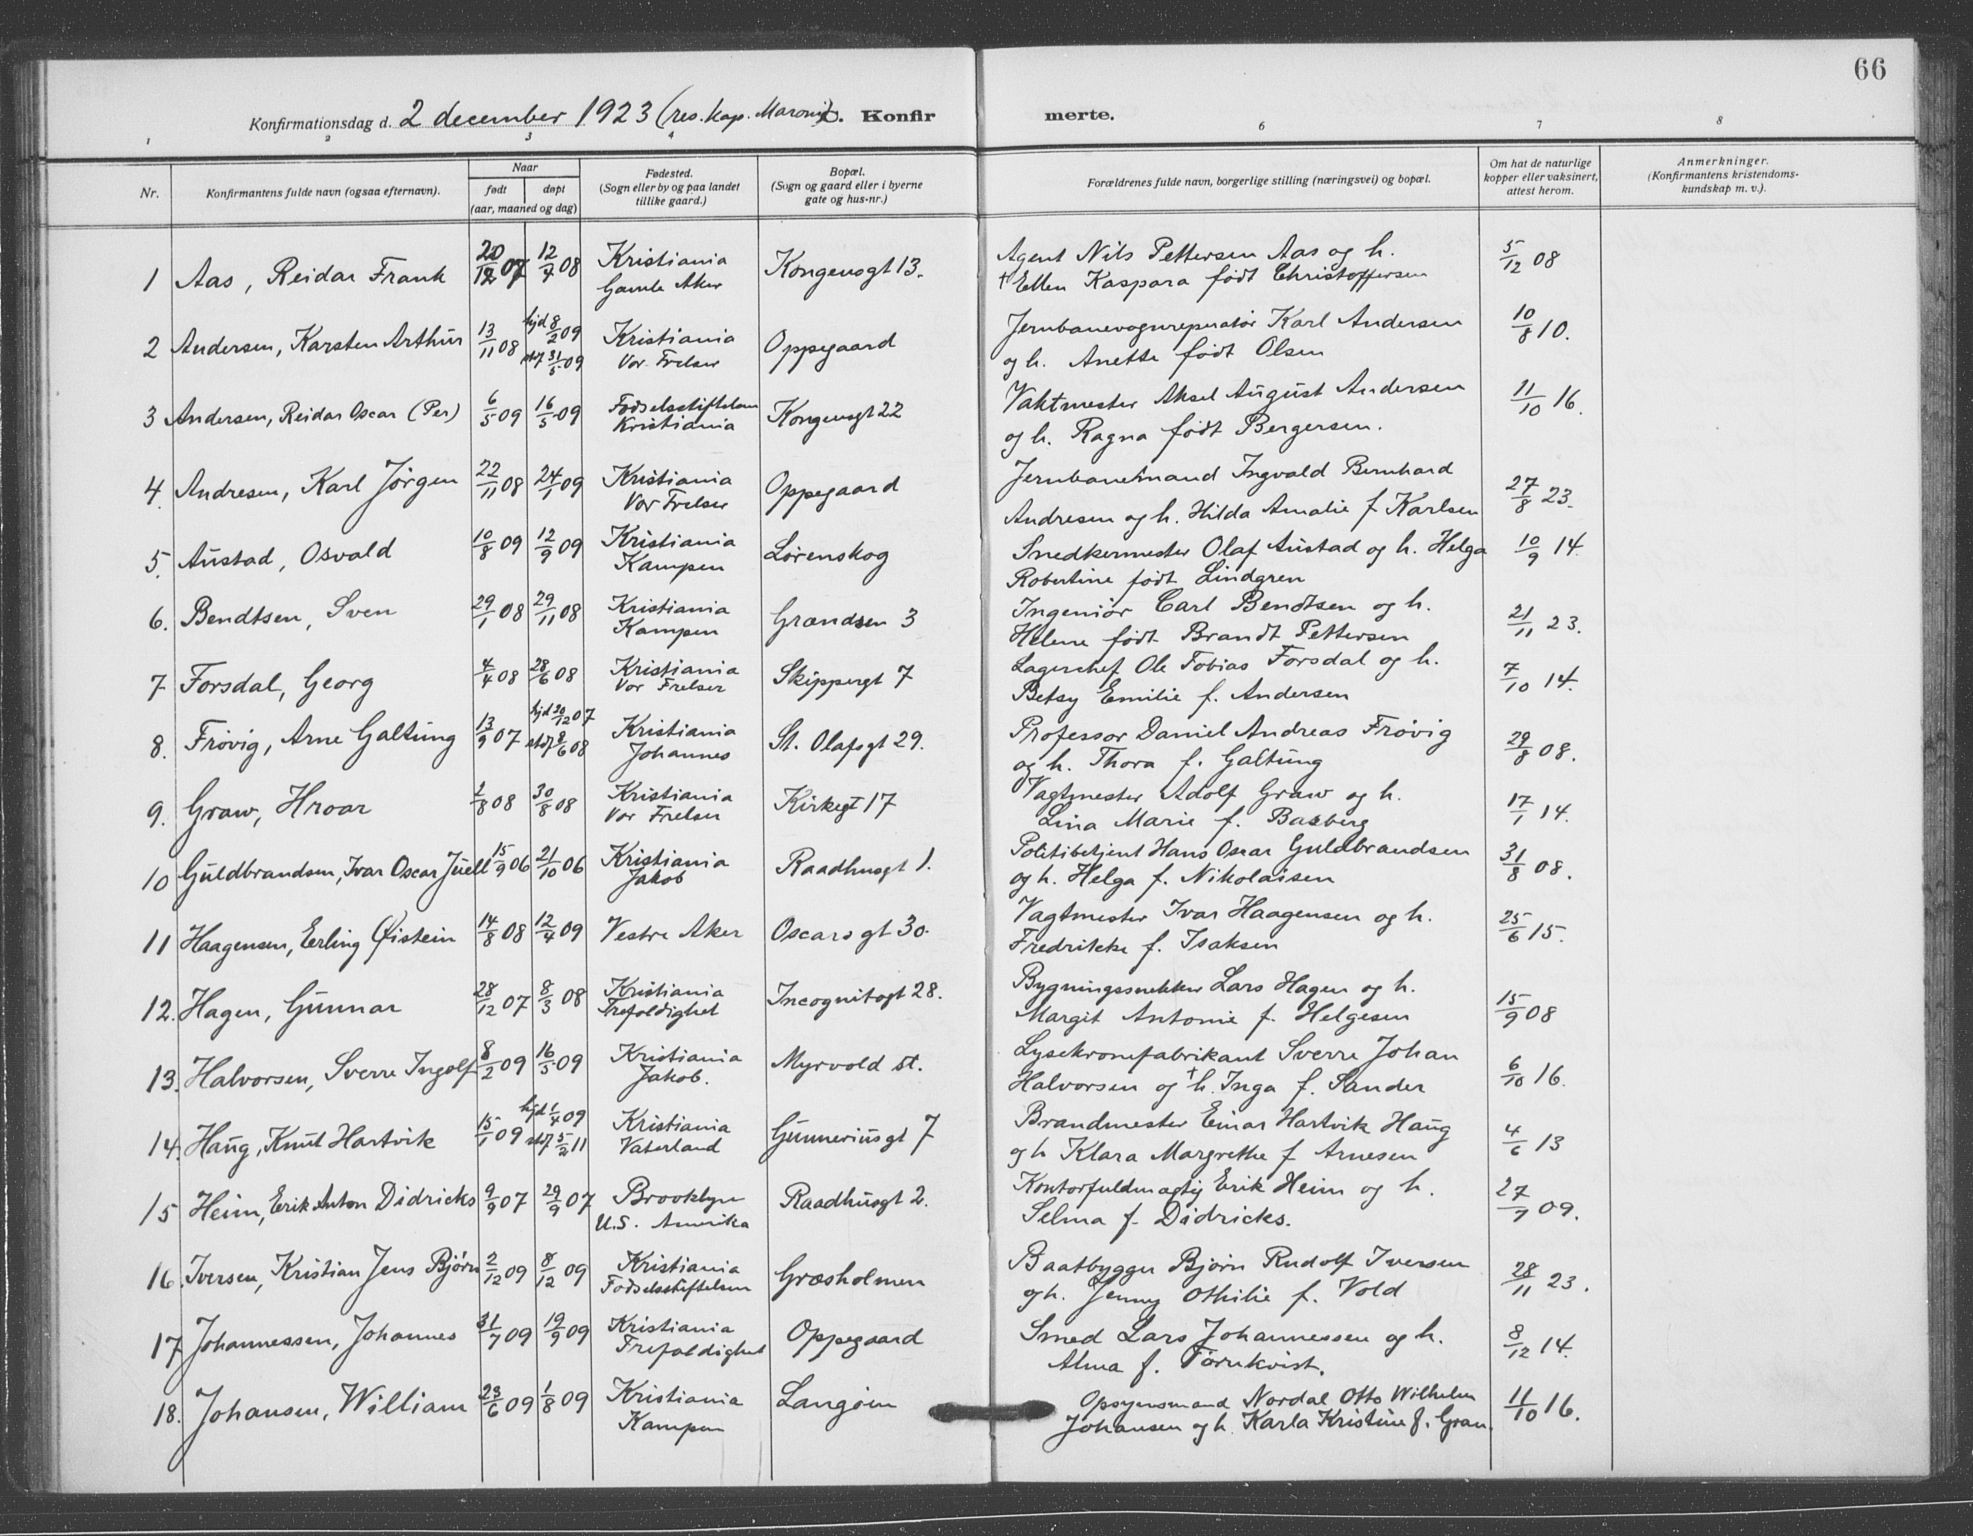 66
Konfirmationsdag d. 2 december 1923 (res. kap. Maroni) C. Konfirmerte.
1 2 3 4 6 7 8
Nr. Konfirmantens fulde navn (ogsaa efternavn). Naar født døpt (aar, maaned og dag) Fødested. (Sogn eller by og paa landet tillike gaard.) Bopæl. (Sogn og gaard eller i byerne gate og hus-nr.) Forældrenes fulde navn, borgerlige stilling (næringsvei) og bopæl. Om hat de naturlige kopper eller vaksinert, attest herom. Anmerkninger. (Konfirmantens kristendomskundskap m. v.).
1 Aas, Reidar Frank 20/12 07 12/4 08 Kristiania Gamle Aker Kongensgt 13. Agent Nils Pettersen Aas og h. † Ellen Kaspara født Christoffersen 5/12 08
2 Andersen, Karsten Arthur 13/11 08 hjd 8/2 09 stdf 31/5 09 Kristiania Vor Frelser Oppegaard Jernbanevognreperatør Karl Andersen og h. Anette født Olsen 10/8 10.
3 Andersen, Reidar Oscar (Per) 6/5 09 16/5 09 Fødselsstiftelsen Kristiania Kongensgt 22 Vaktmester Aksel August Andersen og h. Ragna født Bergersen. 11/10 16.
4. Andresen, Karl Jørgen 22/11 08 24/1 09 Kristiania Vor Frelser Oppegaard Jernbanemand Ingvald Bernhard Andresen og h. Hilda Amalie f Karlsen 27/8 23.
5. Austad, Osvald 10/8 09 12/9 09 Kristiania Kampen Lørenskog Snedkermester Olaf Austad og h. Helga Robertine født Lindgren 10/9 14.
6. Bendtsen, Sven 29/1 08 29/11 08 Kristiania Kampen Grændsen 3 Ingeniør Carl Bendtsen og h. Helene født Brandt Pettersen 21/11 23.
7 Forsdal, Georg 4/4 08 28/6 08 Kristiania Vor Frelser Skippergt 7 Lagerchef Ole Tobias Forsdal og h. Betsy Emilie f. Andersen 7/10 14.
8. Frøvig, Arne Galtung 13/9 07 hjd 20/12 07 stdf 8/6 08 Kristiania Johannes St. Olafsgt 29. Professor Daniel Andreas Frøvig og h. Thora f. Galtung 29/8 08.
9. Graw, Hroar 2/8 08 30/8 08 Kristiania Vor Frelser Kirkegt 17 Vagtmester Adolf Graw og h. Lina Marie f. Basberg 17/1 14.
10 Guldbrandsen, Ivar Oscar Juell 15/9 06 21/10 06 Kristiania Jakob Raadhusgt 1. Politibetjent Hans Oscar Guldbrandsen og h. Helga f. Nikolaisen 31/8 08.
11 Haagensen, Erling Øistein 14/8 08 12/4 09 Vestre Aker Oscarsgt 30. Vagtmester Ivar Haagensen og h. Fredrikke f. Isaksen 25/6 15.
12. Hagen, Gunnar 28/12 07 8/3 08 Kristiania Trefoldighet Incognitogt 28. Bygningssnekker Lars Hagen og h. Margit Antonie f. Helgesen 15/9 08
13. Halvorsen, Sverre Ingolf 8/2 09 16/5 09 Kristiania Jakob. Myrvold st. Lysekronefabrikant Sverre Johan Halvorsen og † h. Inga f. Sander 6/10 16.
14. Haug, Knut Hartvik 15/1 09 hjd 1/4 09 stdf 5/2 11 Kristiania Vaterland Gunneriusgt 7 Brandmester Einar Hartvik Haug og h Klara Margrethe f Arnesen 4/6 13
15 Heim, Erik Anton Didricks 9/9 07 29/9 07 Brooklyn U.S. Amerika Raadhusgt 2. Kontorfuldmægtig Erik Heim og h. Selma f. Didricks. 27/7 09.
16. Iversen, Kristian Jens Bjørn 2/12 09 8/12 09 Kristiania Fødselsstiftelsen Græsholmen Baatbygger Bjørn Rudolf Iversen og h. Jenny Othilie f. Vold 28/11 23.
17 Johannessen, Johannes 31/7 09 19/9 09 Kristiania Trefoldighet Oppegaard Smed Lars Johannessen og h. Alma f. Tørnkvist. 8/12 14.
18. Johansen, William 23/6 09 1/8 09 Kristiania Kampen Langøen Opsynsmand Nordal Otto Wilhelm Johansen og h. Karla Kristine f. Gran. 11/10 16.